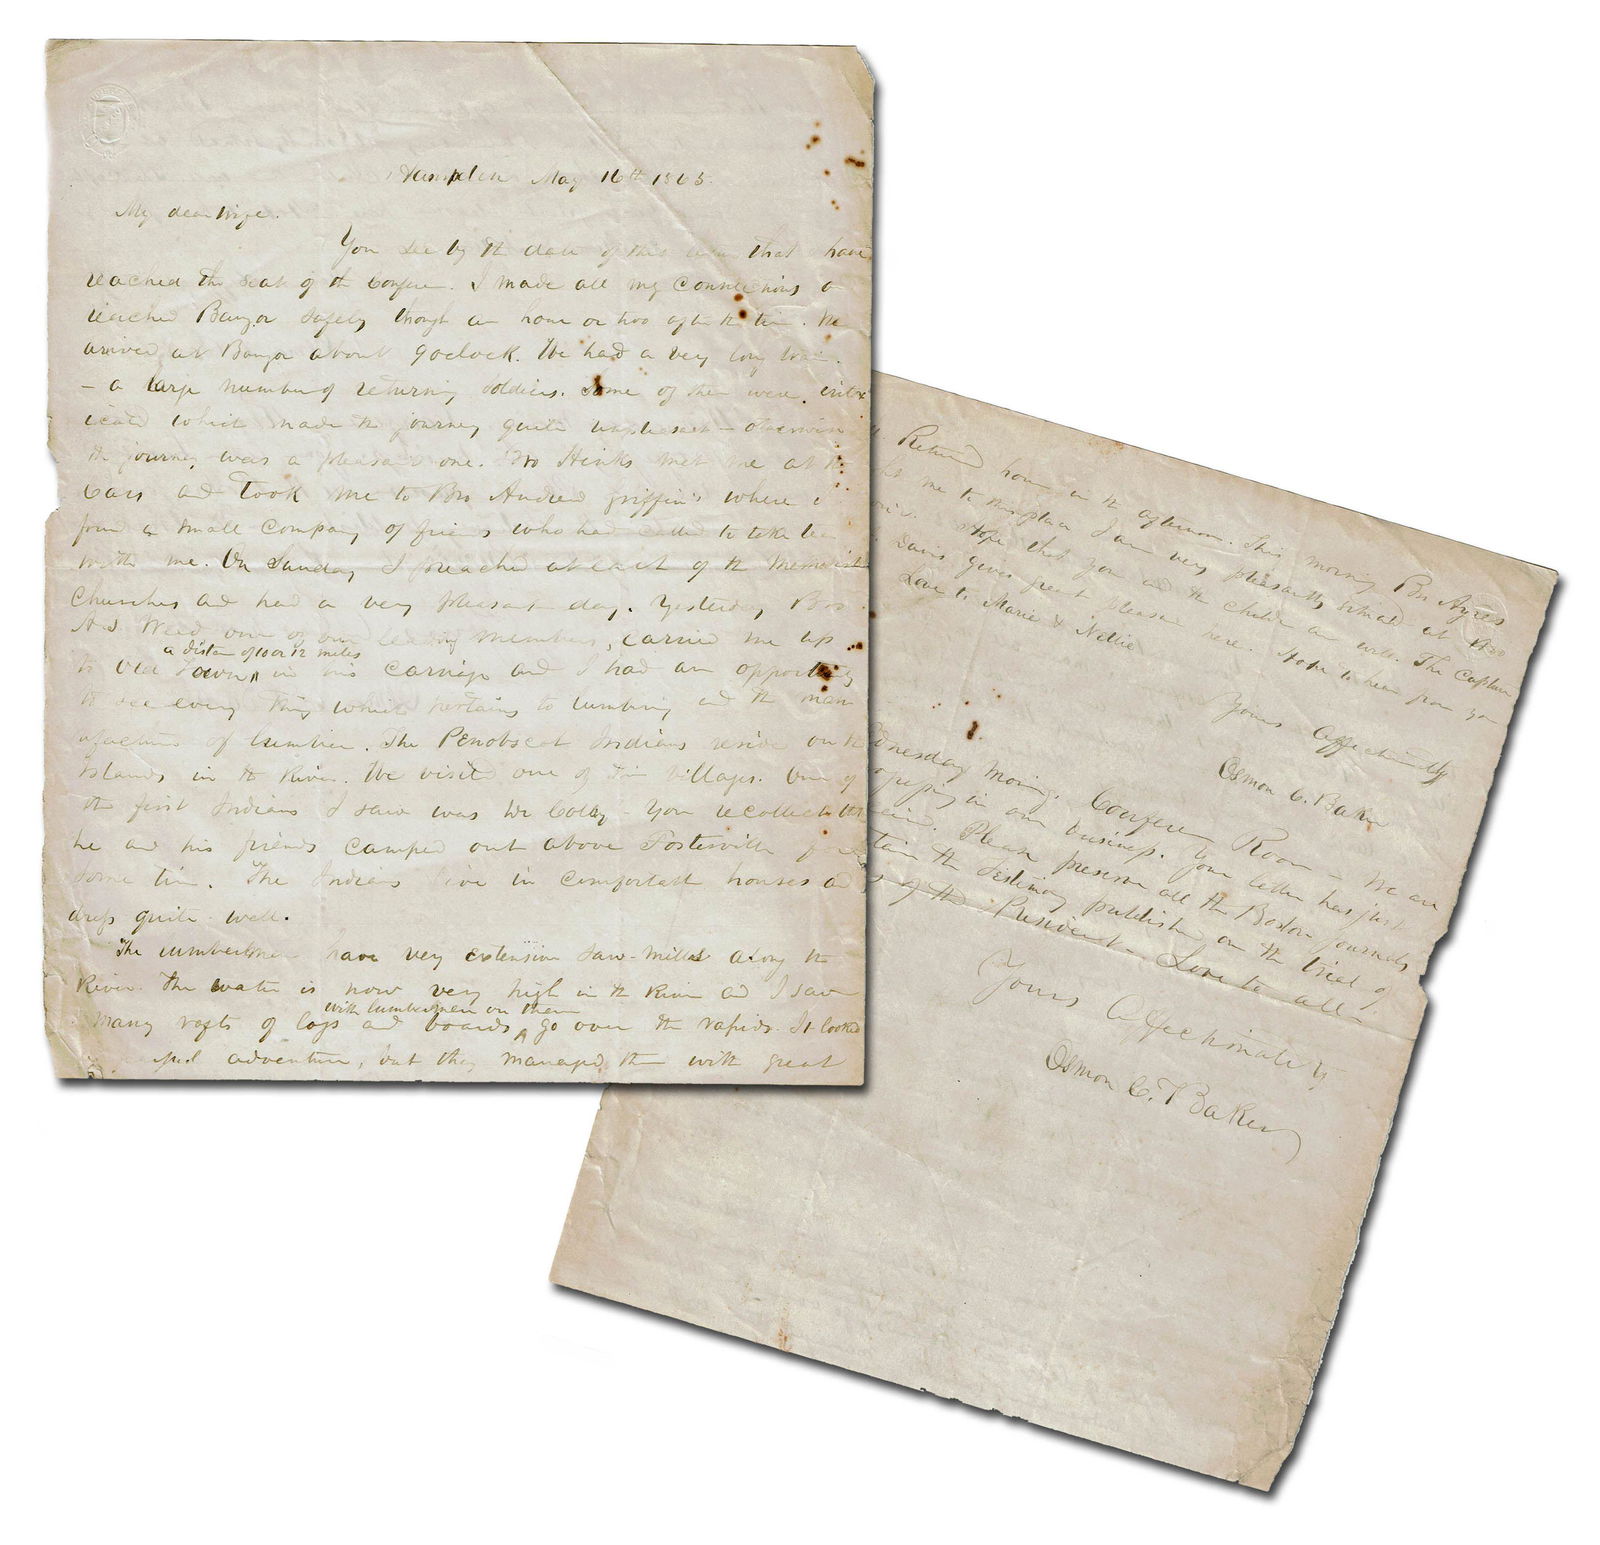 Hampden May 16th 1865.
My dear Wife.
You see by the date of this that I have
reached the seat of the Confere. I made all my connections &
reached Bangor safely though an hour or two after the time. We
arrived at Bangor about 9 oclock. We had a very long train.
– a large number of returning soldiers. Some of them were intox
icated which made the journey quite unpleasant – otherwise
the journey was a pleasant one. Bro Hinks met me at the
Cars and took me to Bro Andrew Griffin's where I
found a small company of friends who had called to take tea
with me. On Sunday I preached at each of the Methodist
Churches and had a very pleasant day. Yesterday Bro.
A.S. Weed one of our leading members, carried me up
a distan of 10 or 12 miles
to Old Town ^ in his carriage and I had an opportunity
to see every thing which pertains to lumbering and the man
ufacture of lumber. The Penobscot Indians reside on the
Islands in the River. We visited one of their villages. One of
the first Indians I saw was Dr Colby – You recollect that
he and his friends camped out above Fosterville for
some time. The Indians live in comfortable houses and
dress quite well.
The lumbermen have very extensive saw-mills along the
River. The water is now very high in the River and I saw
with lumbermen on them
many rafts of logs and boards ^ go over the rapids. It looked
adventure, but they managed them with great
Returned home in the afternoon. This morning Bro Ayres
me to this place I am very pleasantly situated at Bro
Hope that you and the children are well. The Captur
Davis gives great pleasure here. Hope to hear from you
Love to Marie & Nellie
Yours Affectionately
Osmon C. Baker
Wednesday Morning. Conference Room – We are
in our business. Your letter has just
Please preserve all the Boston Journals
the testimony published on the trial of
of the President – Love to all –
Yours Affectionately
Osmon C. Baker